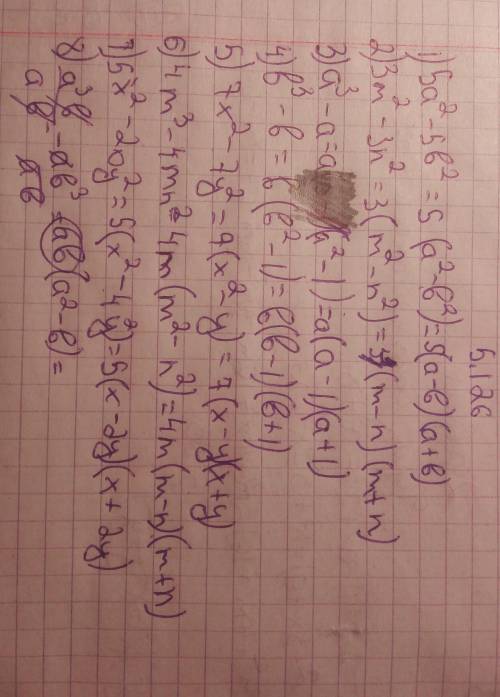 5.126
1) 5a² - 5b² = 5(a² - b²) = 5(a - b)(a + b)
2) 3m² - 3n² = 3(m² - n²) = 3(m - n)(m + n)
3) a³ - a = a(a² - 1) = a(a - 1)(a + 1)
4) b³ - b = b(b² - 1) = b(b - 1)(b + 1)
5) 7x² - 7y² = 7(x² - y) = 7(x - y)(x + y)
6) 4m³ - 4mn² = 4m(m² - n²) = 4m(m - n)(m + n)
7) 5x² - 20y² = 5(x² - 4y²) = 5(x - 2y)(x + 2y)
8) a³b - ab³ = ab(a² - b) =
ab ab